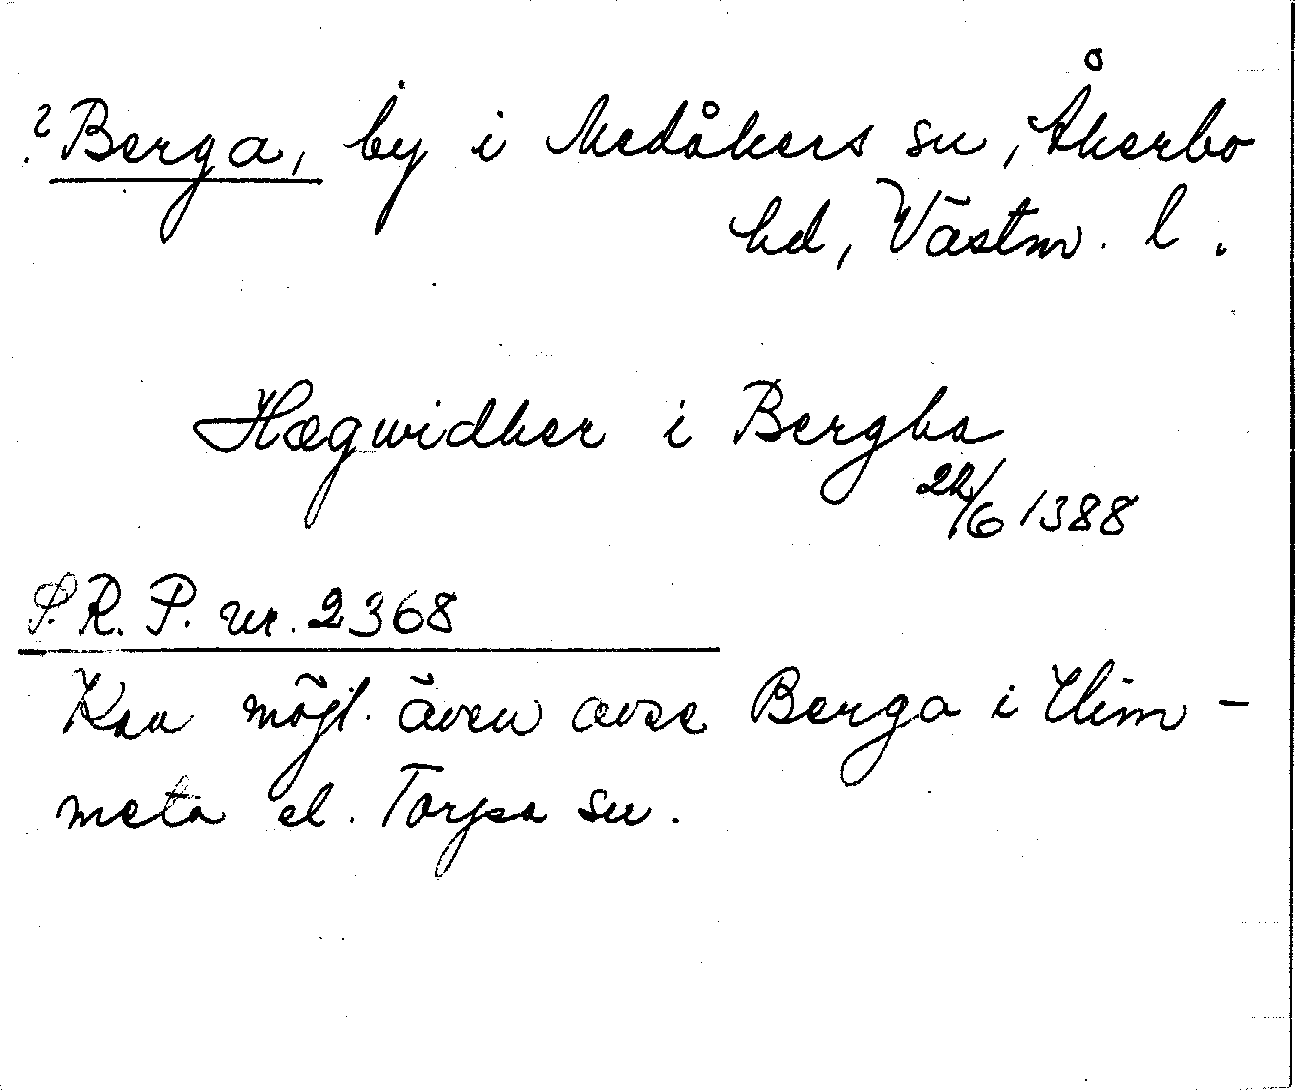 ? Berga, by i Medåkers sn, Åkerbo
hd, Västm. l.
Hægwidher i Bergha
22/6 1388
S.R.P. nr. 2368
Kan möjl. även avse Berga i Him-
meta el. Torpa sn.